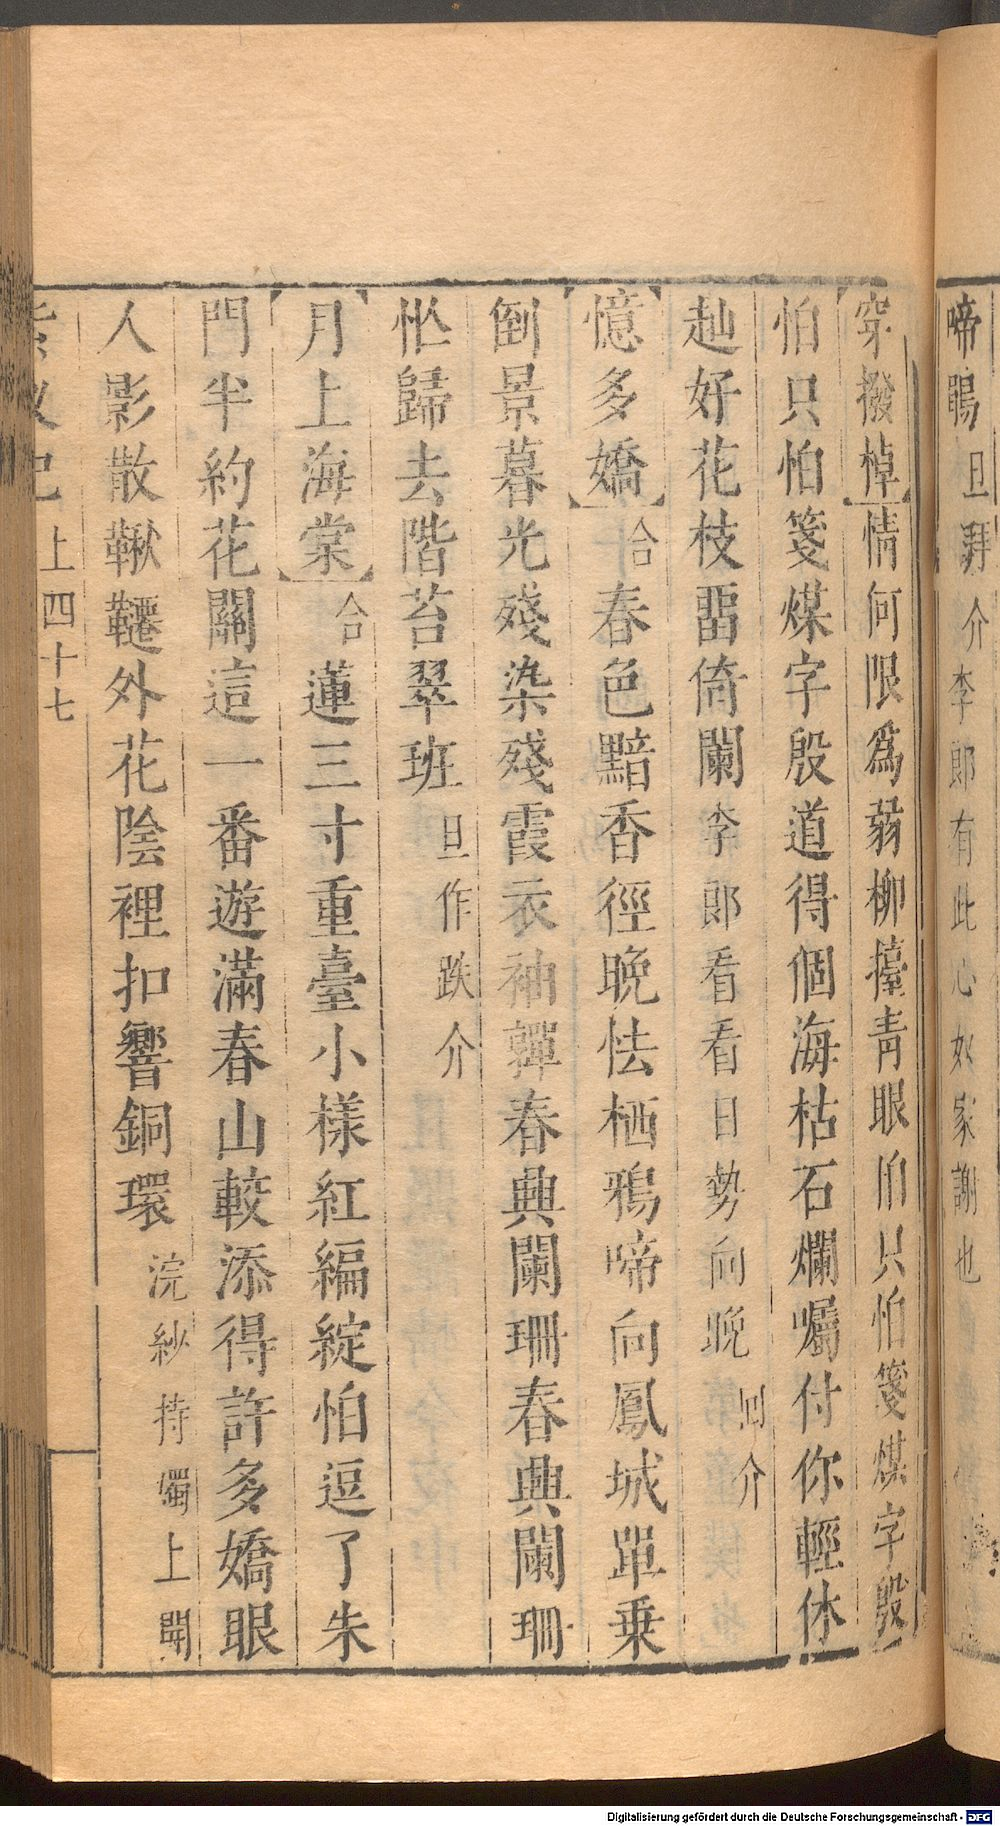 啼鵑旦拜介李郎有此心奴家謝也
穿撥棹情何限爲弱柳擡青眼怕只怕箋煤字殷
怕只怕箋煤字殷道得個海枯石爛囑付你輕休
赸好花枝畱倚闌李郎看看日勢向晚回介
憶多嬌合春色黯香徑晚怯栖鴉啼向鳳城單乗
倒景暮光殘染殘霞衣袖軃春興闌珊春興闌珊
恾歸去階苔翠班旦作跌介
月上海棠合蓮三寸重臺小様紅編綻怕逗了朱
門半約花關這一番遊滿春山較添得許多嬌眼
人影散鞦韆外花陰裡扣響銅環浣紗持獨上開
紫釵記上四十七
Digitalisierung gefördert durch die Deutsche Forschungsgemeinschaft - DFG